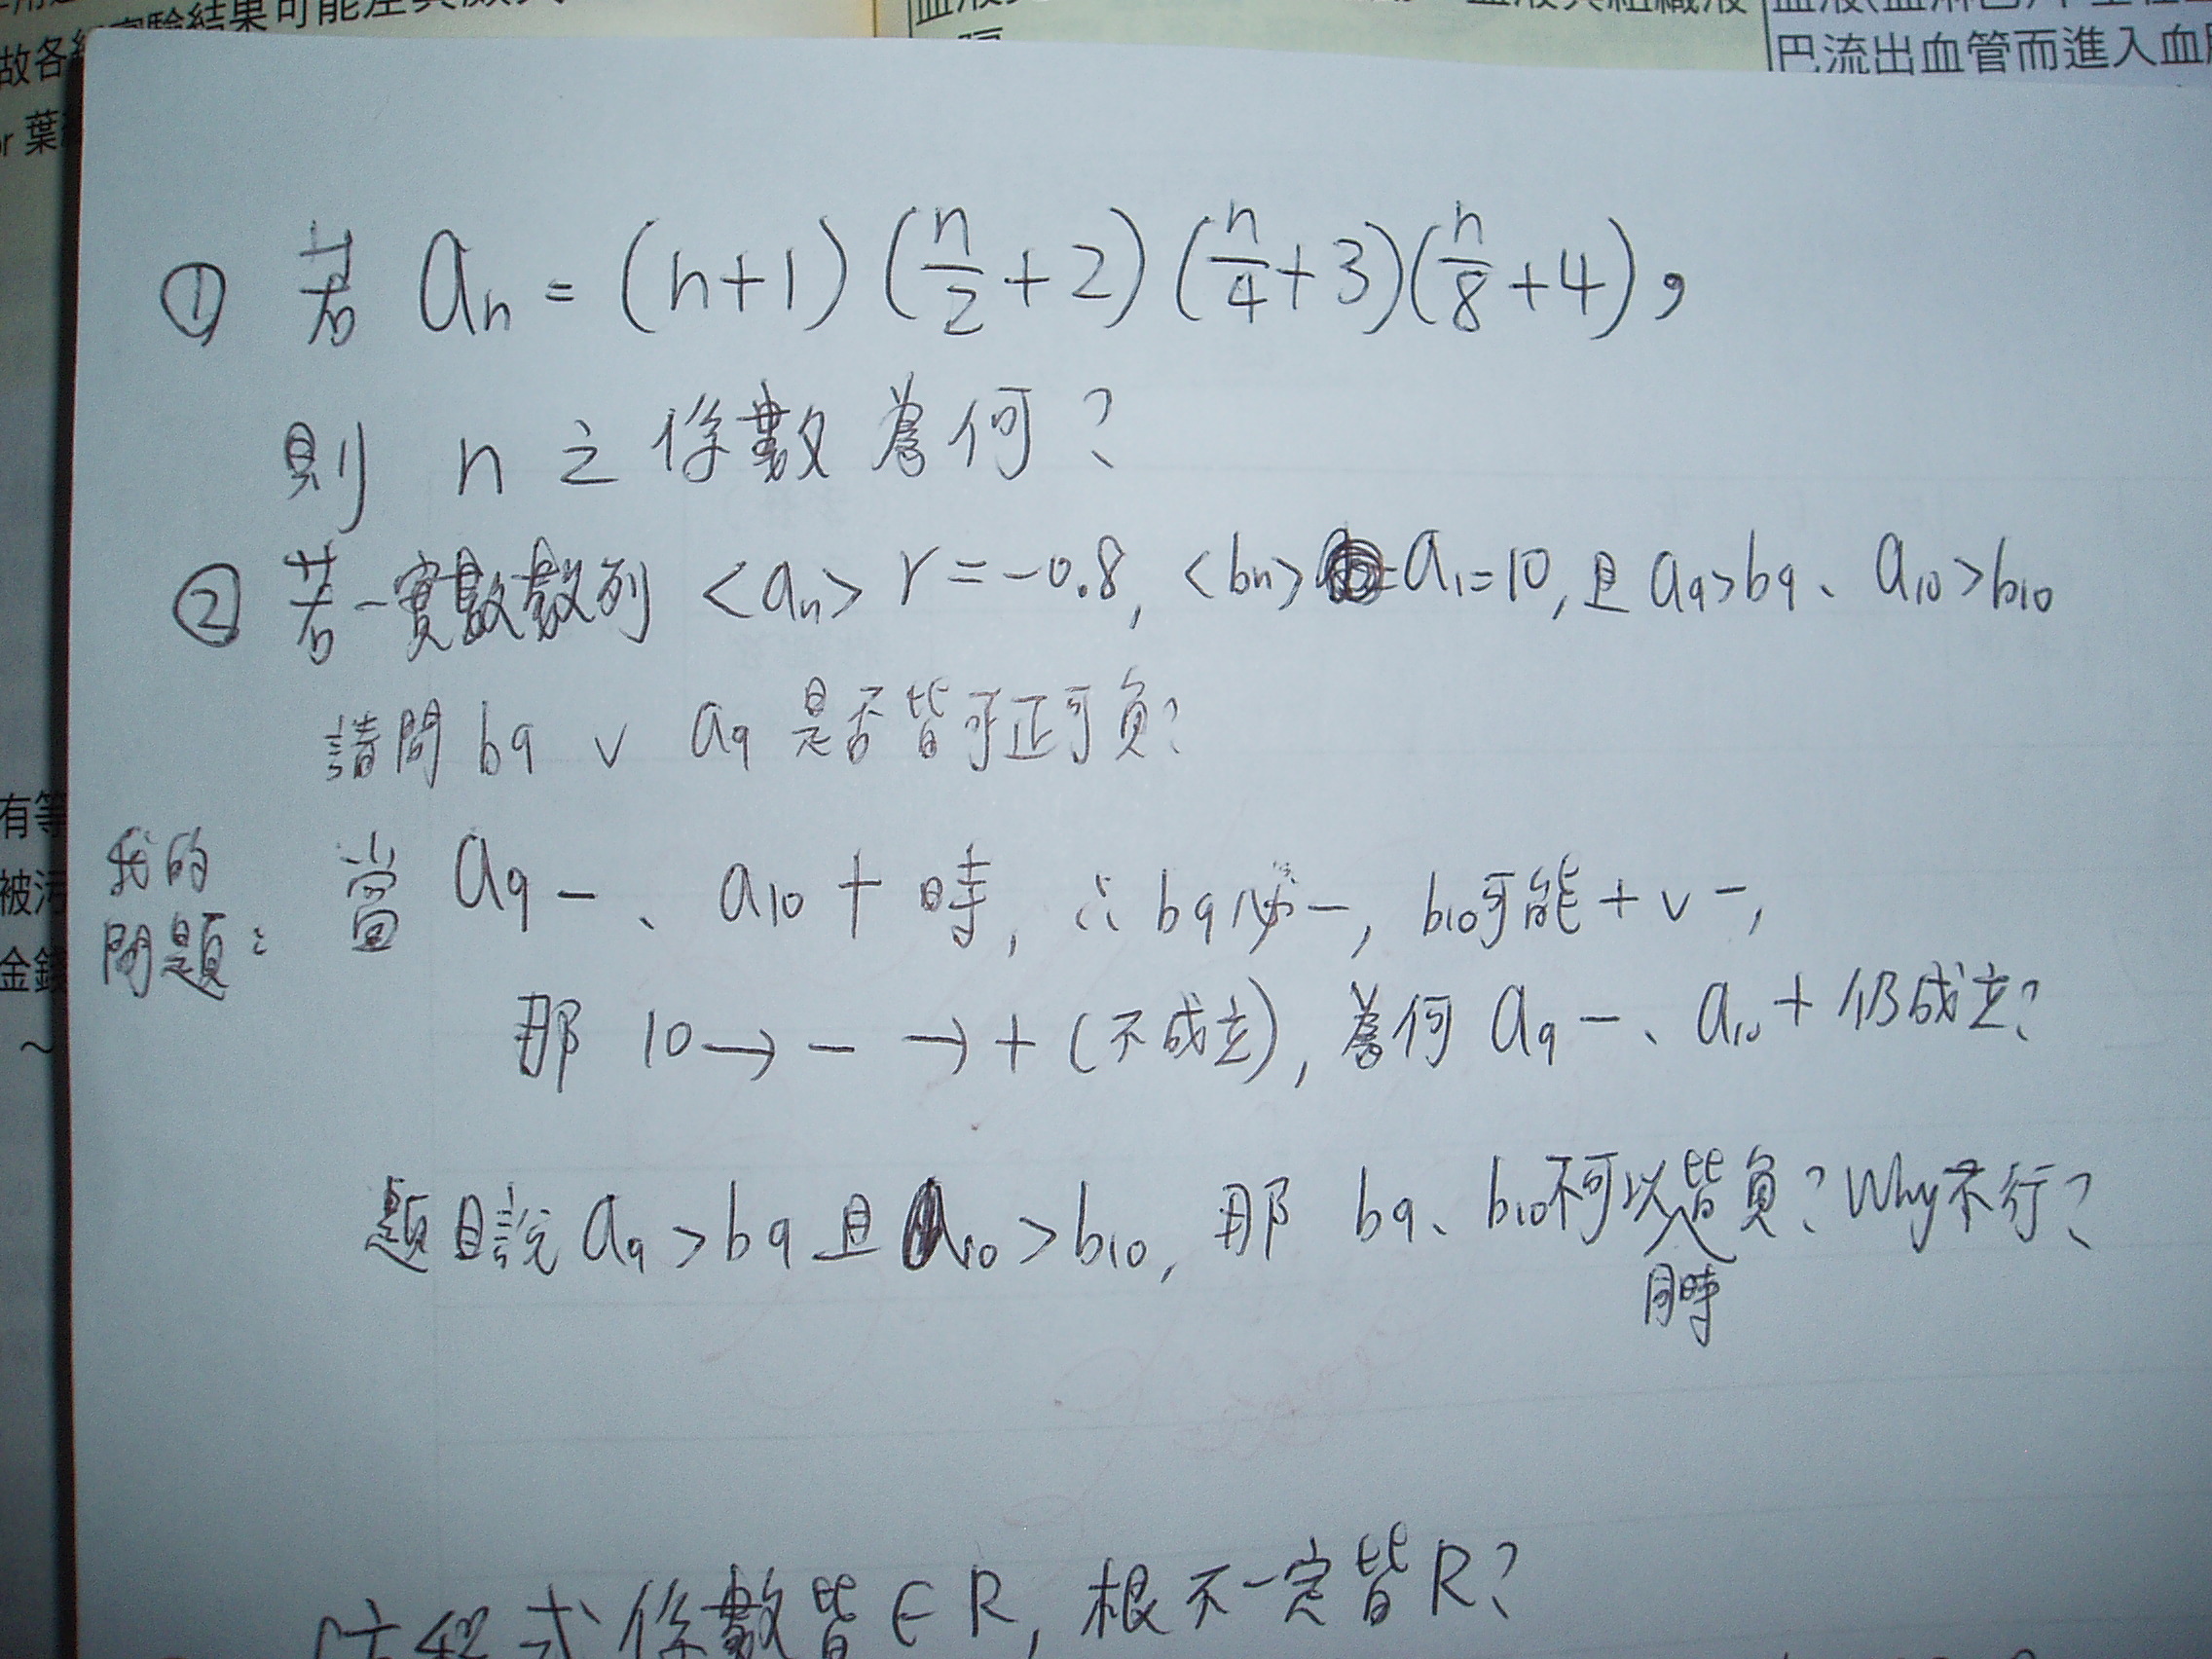 故各
血液(血淋巴)
巴流出血管而進入血
① 若 aₙ = (n+1)(n/2+2)(n/4+3)(n/8+4),
則 n 之係數為何?
② 若一實數數列 <aₙ> r=-0.8, <bₙ> a₁=10, 且 a₉>b₉、a₁₀>b₁₀
請問 b₉ v a₉ 是否皆可正可負?
我的問題: 當 a₉ -、a₁₀ + 時, ∴ b₉必-, b₁₀可能 + v -,
那 10→ - → + (不成立), 為何 a₉ -、a₁₀ + 仍成立?
題目說 a₉>b₉ 且 a₁₀>b₁₀, 那 b₉、b₁₀不可以同時皆負? Why不行?
方程式係數皆∈R, 根不一定皆R?
有等
被污
金錢